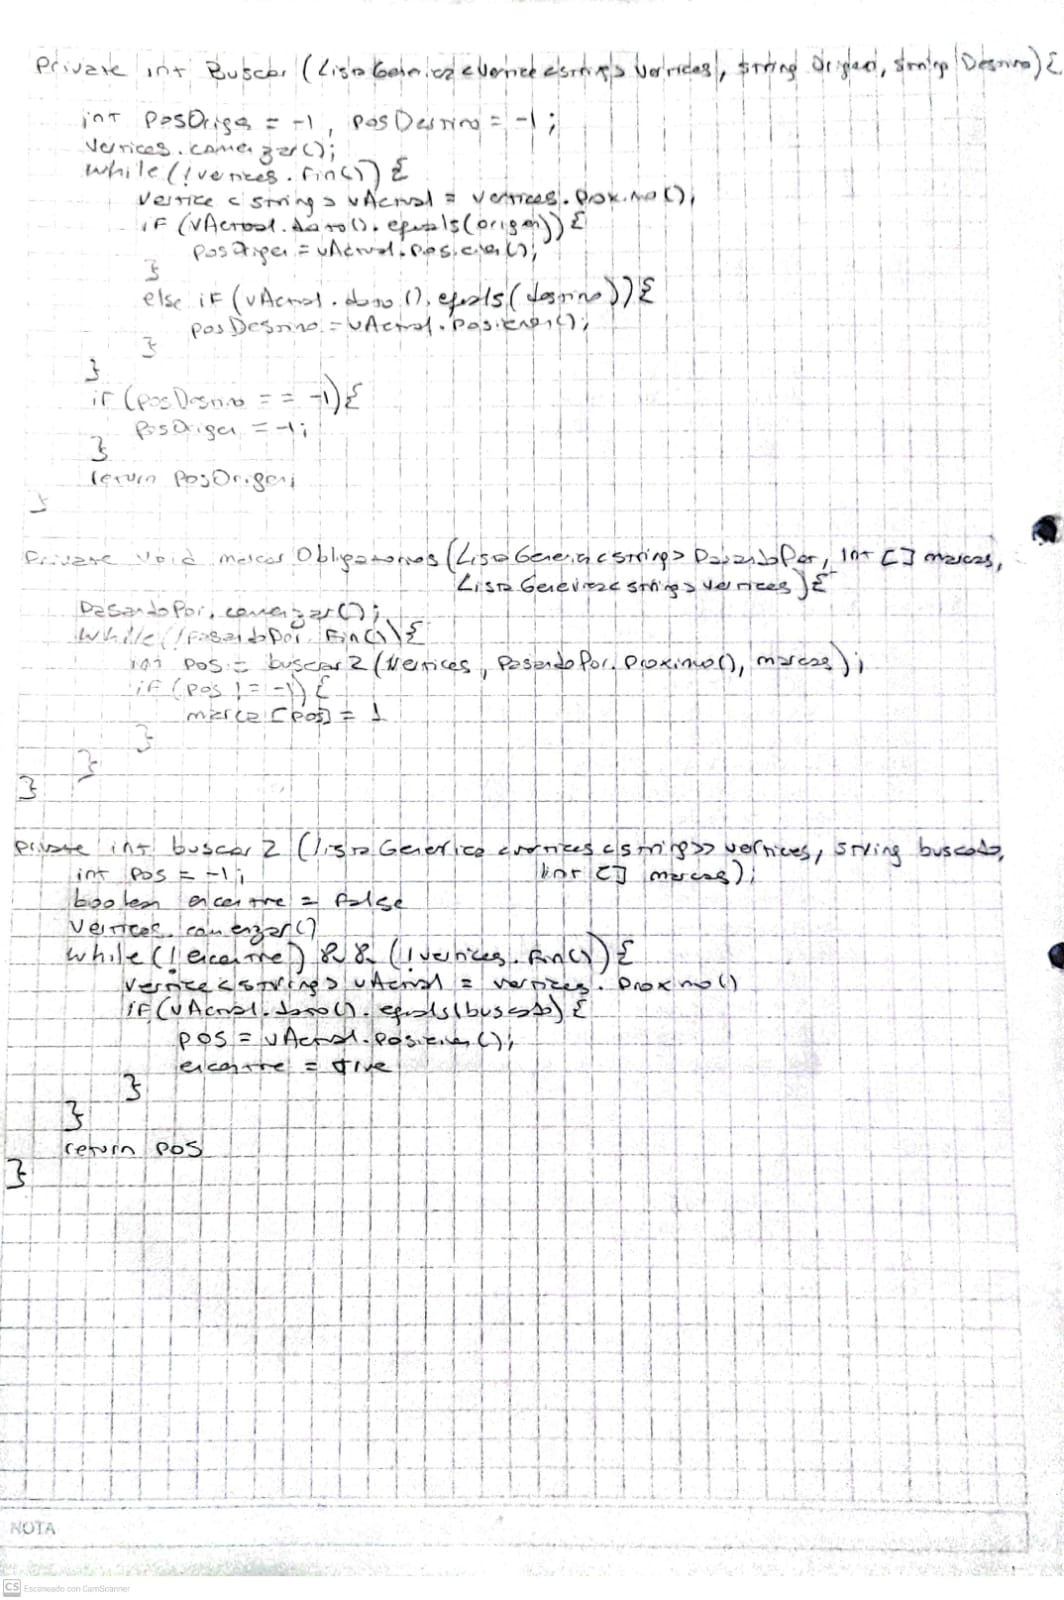 Private int Buscar (ListaGenerica<Vertice<string>> Vertices, string Origen, string Destino){
int posOrigen = -1, posDestino = -1;
Vertices.comenzar();
while(!vertices.fin()){
Vertice<string> vActual = vertices.proximo();
if (vActual.dato().equals(origen)){
posOrigen = vActual.posicion();
}
else if (vActual.dato().equals(destino)){
posDestino = vActual.posicion();
}
}
if (posDestino == -1){
posOrigen = -1;
}
return posOrigen;
}
Private void marcar Obligatorios (ListaGenerica<string> PasandoPor, int [] marcas,
ListaGenerica<string> vertices){
PasandoPor.comenzar();
while(!PasandoPor.fin()){
int pos = buscar2 (Vertices, PasandoPor.proximo(), marcas);
if (pos != -1){
marca[pos] = 1
}
}
}
private int buscar2 (ListaGenerica<vertices<string>> vertices, string buscado,
int [] marcas);
int pos = -1;
boolean encontre = false
Vertices.comenzar()
while(!encontre) && (!vertices.fin()){
vertice<string> vActual = vertices.proximo()
if(vActual.dato().equals(buscado){
pos = vActual.posicion();
encontre = true
}
}
return pos
}
NOTA
CS Escaneado con CamScanner